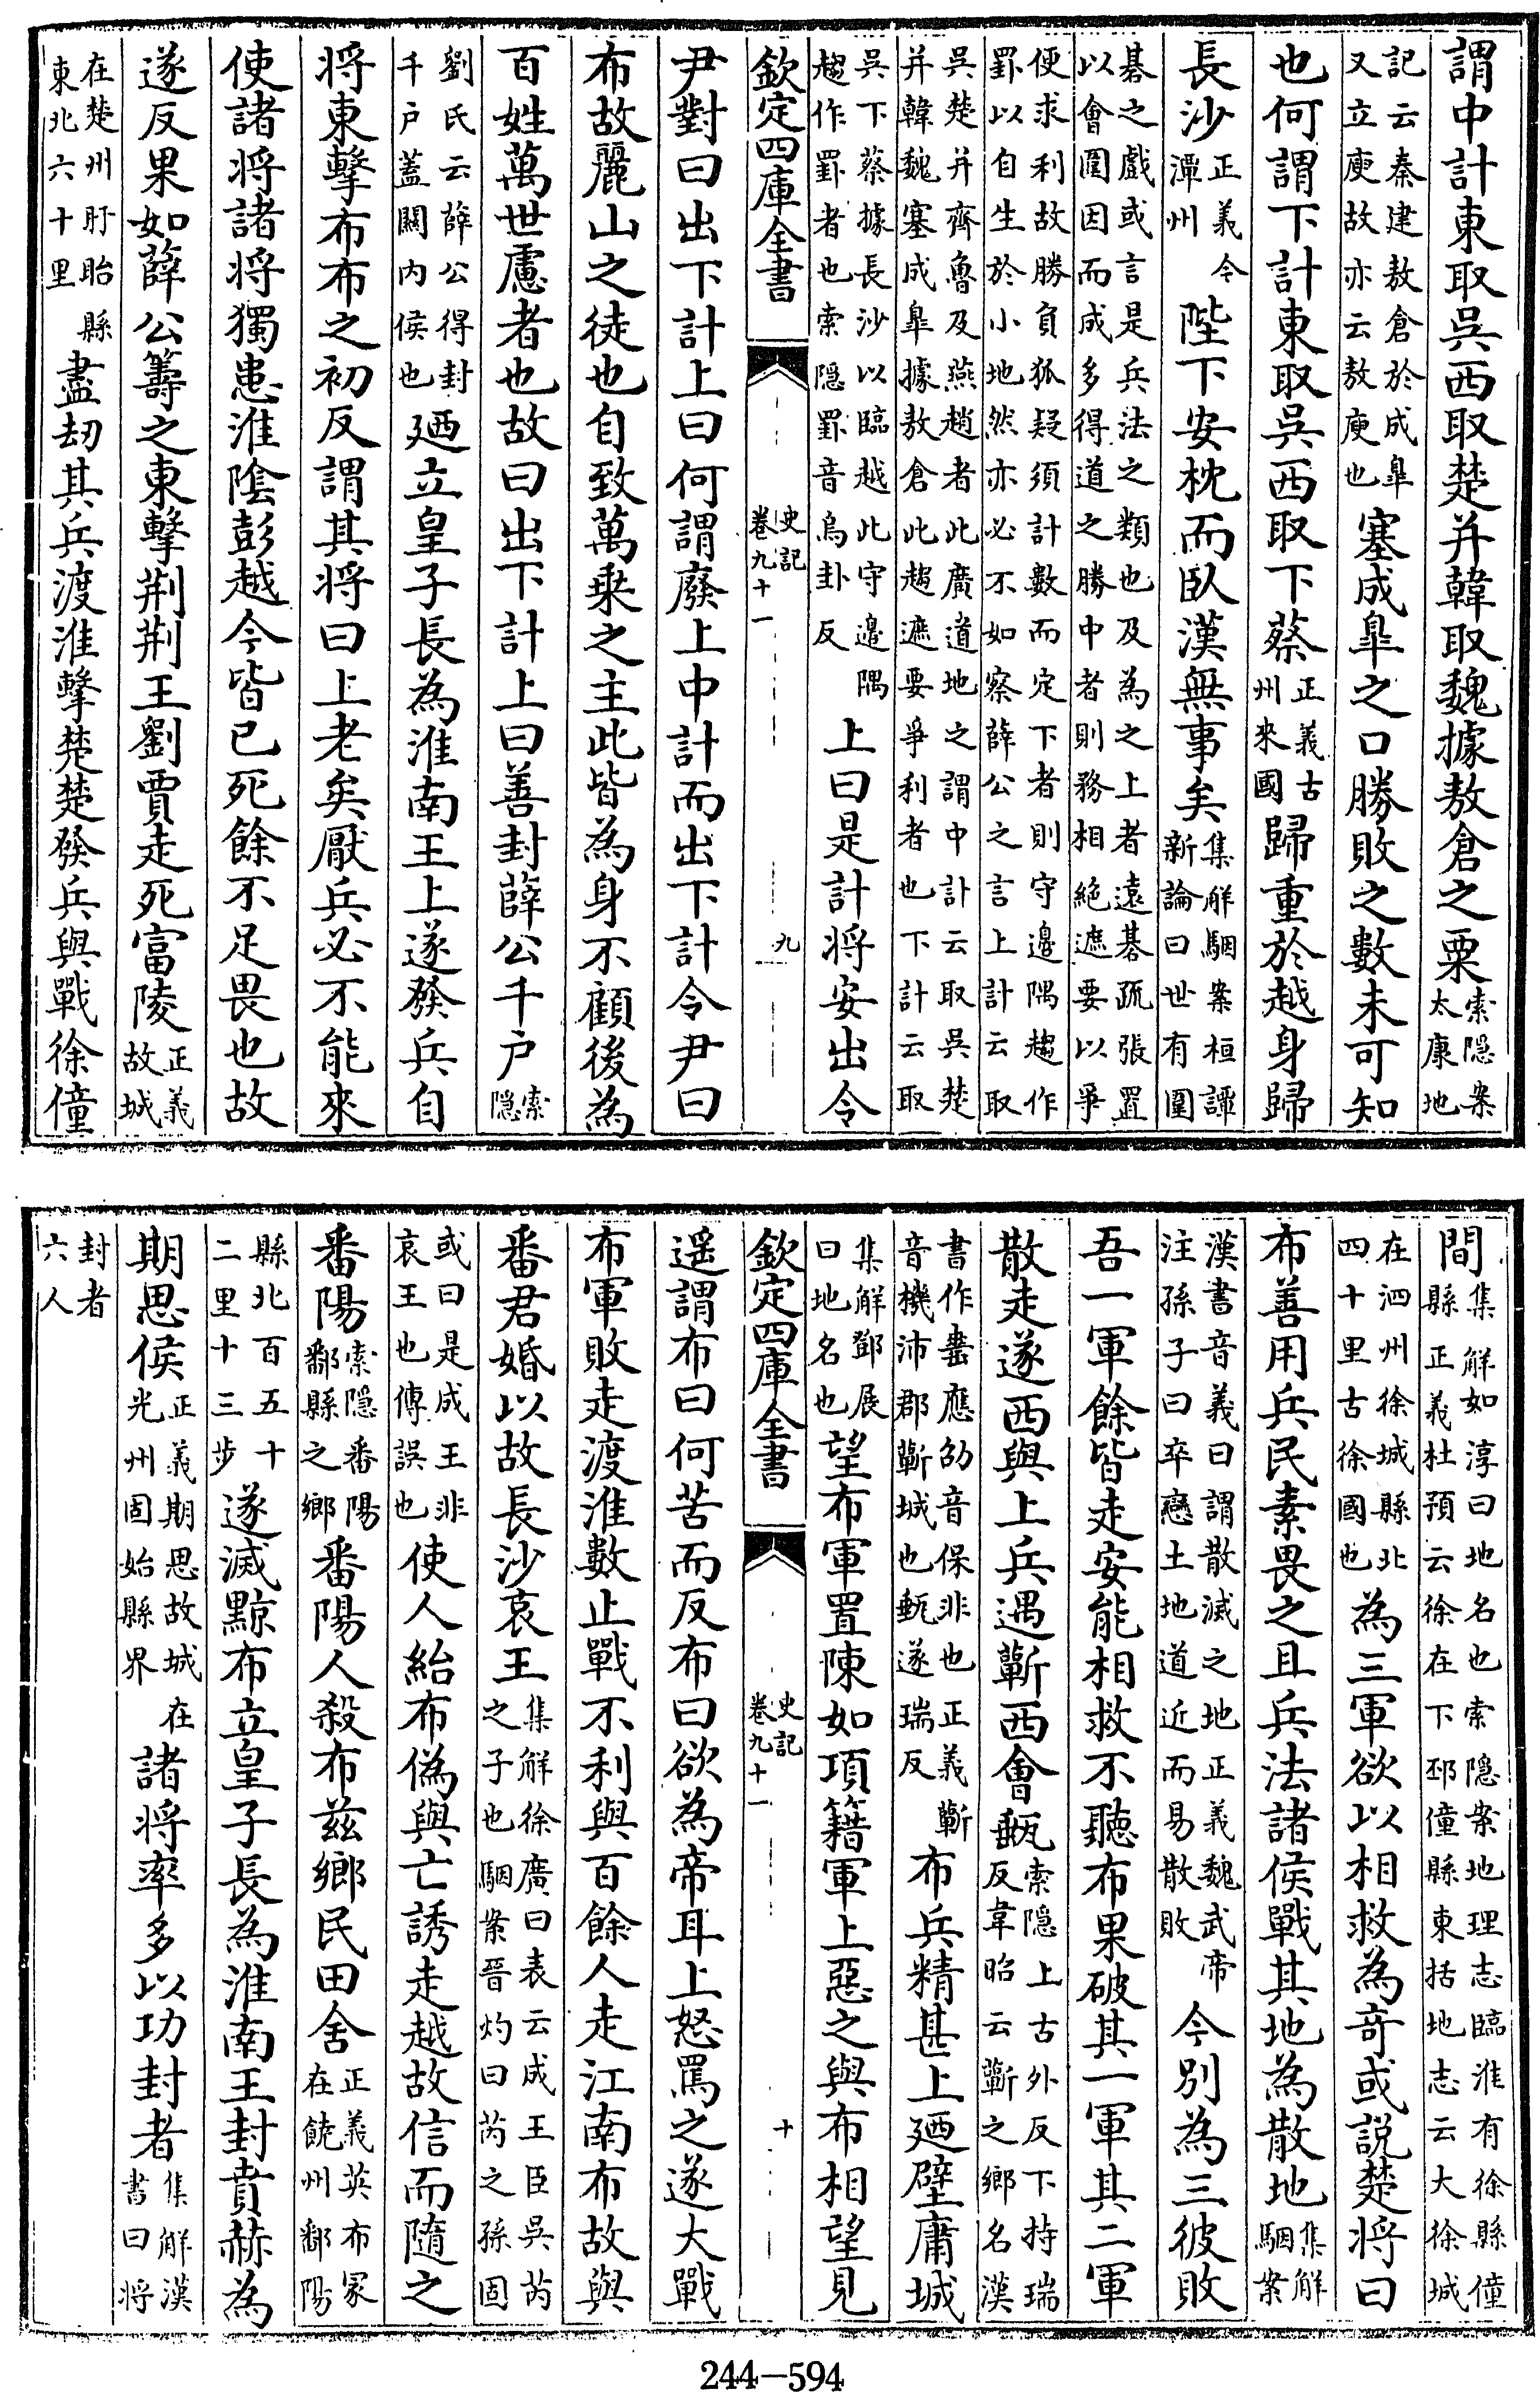 謂中計東取吳西取楚并韓取魏據敖倉之粟索隠案太康地
記云秦建敖倉於成臯又立庾故亦云敖庾也塞成臯之口勝敗之數未可知
也何謂下計東取吳西取下蔡正義古州來國歸重於越身歸
長沙正義今潭州陛下安枕而臥漢無事矣集解駰案桓譚新論曰世有圍
碁之戲或言是兵法之類也及為之上者遠碁疏張置以會圍因而成多得道之勝中者則務相絶遮要以爭
便求利故勝負狐疑須計數而定下者則守邊隅趨作罫以自生於小地然亦必不如察薛公之言上計云取
吳楚并齊魯及燕趙者此廣道地之謂中計云取吳楚并韓魏塞成臯據敖倉此趨遮要爭利者也下計云取
吳下蔡據長沙以臨越此守邊隅趨作罫者也索隠罫音烏卦反上曰是計將安出令
欽定四庫全書 史記卷九十一 九
尹對曰出下計上曰何謂廢上中計而出下計令尹曰
布故麗山之徒也自致萬乗之主此皆為身不顧後為
百姓萬世慮者也故曰出下計上曰善封薛公千户索隠
劉氏云薛公得封千户蓋關内侯也廼立皇子長為淮南王上遂發兵自
將東擊布布之初反謂其將曰上老矣厭兵必不能來
使諸將諸將獨患淮陰彭越今皆已死餘不足畏也故
遂反果如薛公籌之東擊荆荆王劉賈走死富陵正義故城
在楚州盱眙縣東北六十里盡刼其兵渡淮擊楚楚發兵與戰徐僮
間集解如淳曰地名也索隠案地理志臨淮有徐縣僮縣正義杜預云徐在下邳僮縣東括地志云大徐城
在泗州徐城縣北四十里古徐國也為三軍欲以相救為奇或説楚將曰
布善用兵民素畏之且兵法諸侯戰其地為散地集解駰案
漢書音義曰謂散滅之地正義魏武帝注孫子曰卒戀土地道近而易散敗今别為三彼敗
吾一軍餘皆走安能相救不聽布果破其一軍其二軍
散走遂西與上兵遇蘄西會甀索隠上古外反下持瑞反韋昭云蘄之鄉名漢
書作罋應劭音保非也正義蘄音機沛郡蘄城也甀遂瑞反布兵精甚上廼壁庸城
集解鄧展曰地名也望布軍置陳如項籍軍上惡之與布相望見
欽定四庫全書 史記卷九十一 十
遥謂布曰何苦而反布曰欲為帝耳上怒罵之遂大戰
布軍敗走渡淮數止戰不利與百餘人走江南布故與
番君婚以故長沙哀王集解徐廣曰表云成王臣吳芮之子也駰案晉灼曰芮之孫固
或曰是成王非哀王也傳誤也使人紿布偽與亡誘走越故信而隨之
番陽索隠番陽鄱縣之鄉番陽人殺布兹鄉民田舍正義英布冢在饒州鄱陽
縣北百五十二里十三步遂滅黥布立皇子長為淮南王封賁赫為
期思侯正義期思故城在光州固始縣界諸將率多以功封者集解漢書曰將
封者六人
244—594